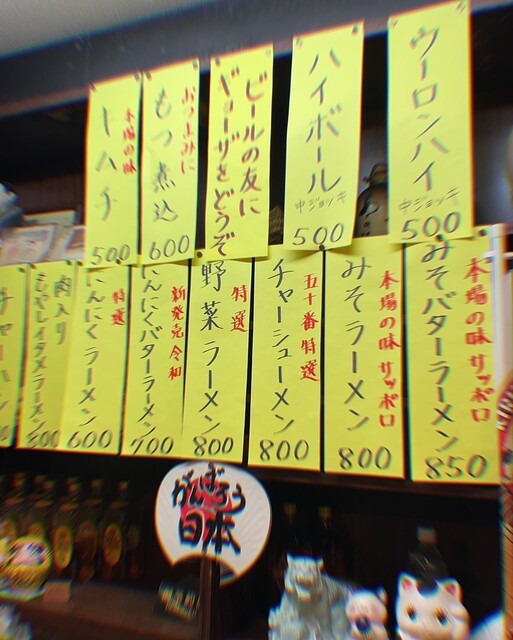 ウーロンハイ
中ジョッキ
500
ハイボール
中ジョッキ
500
ビールの友に
ギョーザをどうぞ
おつまみに
もつ煮込
600
本場の味
キムチ
500
本場の味 サッポロ
みそバターラーメン
850
本場の味 サッポロ
みそラーメン
800
五十番特選
チャーシューメン
800
特選
野菜ラーメン
800
新発売 令和
にんにくバターラーメン
700
特選
にんにくラーメン
600
肉入り
もやしイタメラーメン
800
チャーハン
がんばろう
日本